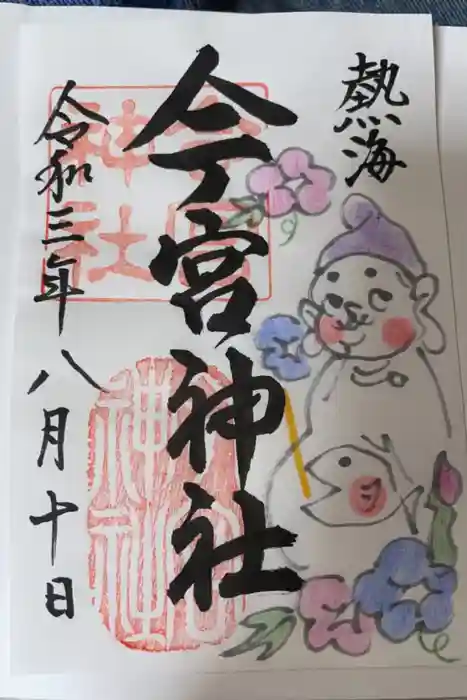 熱海
今宮神社
令和三年八月十日
今宮
神社